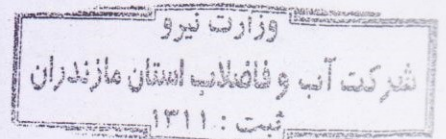 وزارت نیرو
شرکت آب و فاضلاب استان مازندران
ثبت : ۱۳۱۱